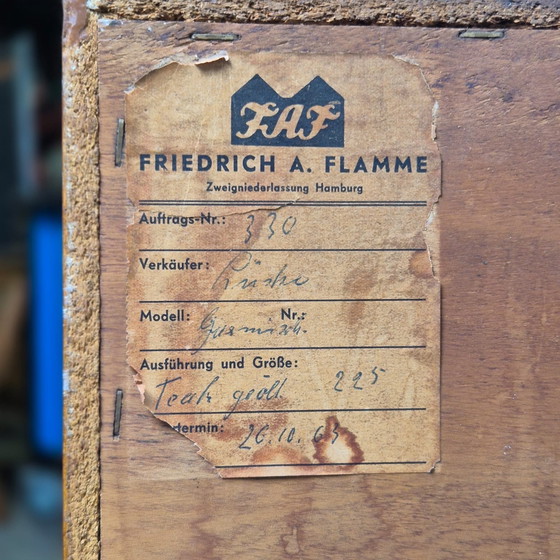 FAF
FRIEDRICH A. FLAMME
Zweigniederlassung Hamburg
Auftrags-Nr.: 330
Verkäufer:
Modell: Garmisch. Nr.:
Ausführung und Größe:
Teak geölt. 225
termin: 26.10.65